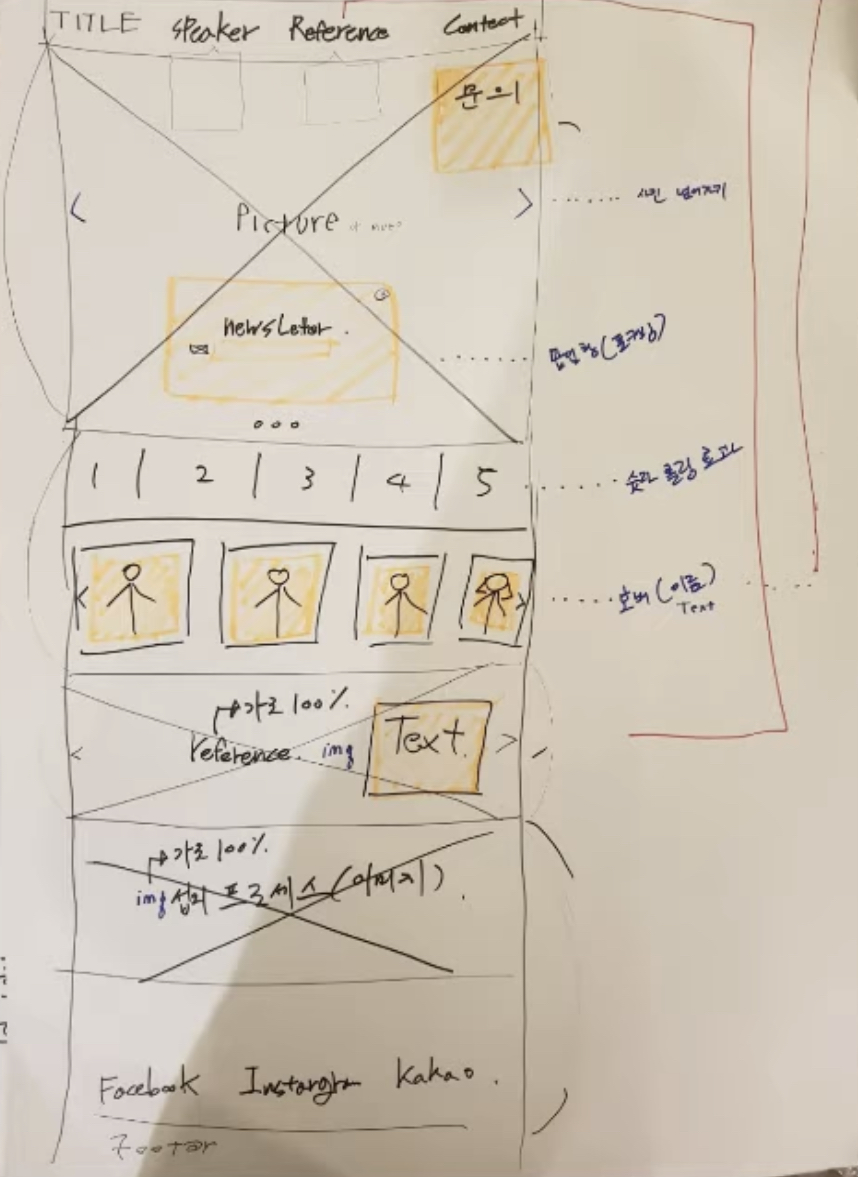 TITLE speaker Reference Contect
문의
Picture
사진 넘어가기
newsletter.
팝업창(포커싱)
1 2 3 4 5
숫자 롤링 효과
호버(이름)
Text
가로 100%
reference. img Text
가로 100%.
img 섭외 프로세스(이미지).
Facebook Instargram Kakao.
Footer